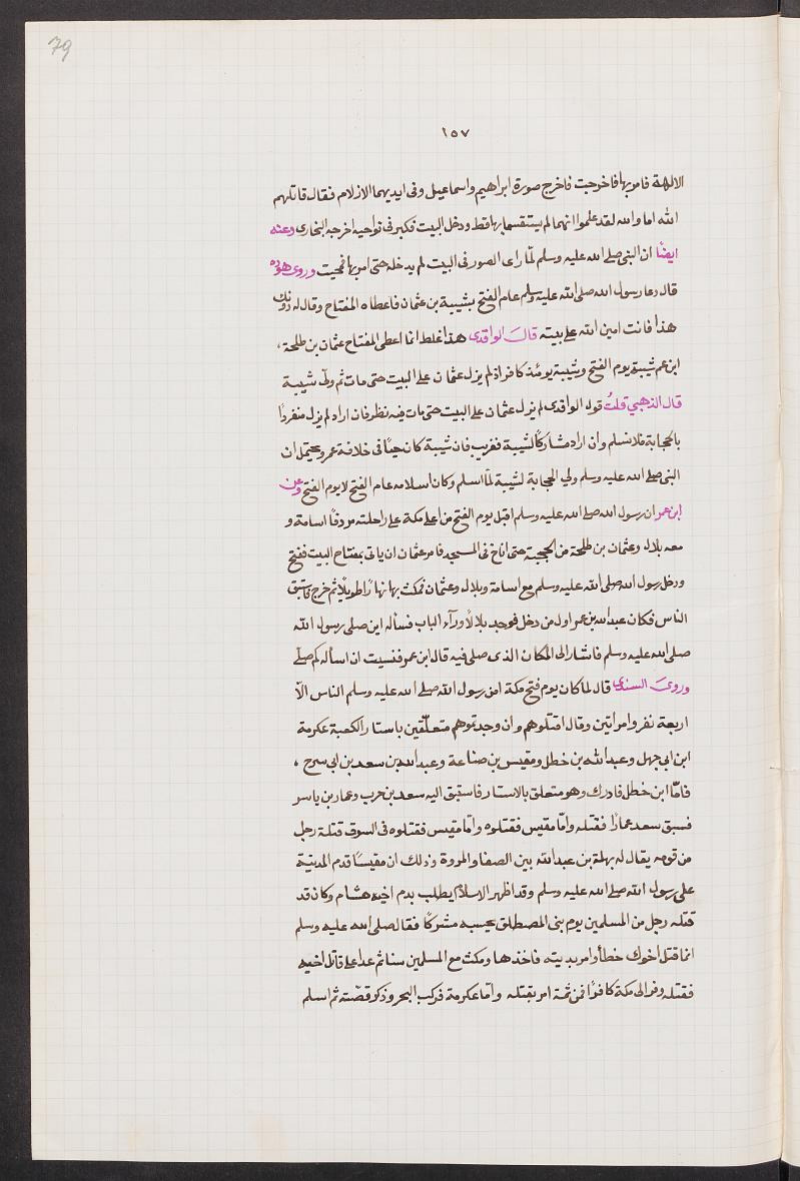 79
١٥٧
الالهة فامر بها فاخرجت فاخرج صورة ابراهيم واسماعيل وفى ايديهما الازلام فقال قاتلهم
الله اما والله لقد علموا انهما لم يستقسما بها قط ودخل البيت فكبر فى نواحيه اخرجه البخارى وعنه
ايضًا ان النبى صلى الله عليه وسلم لمّا راى الصور فى البيت لم يدخله حتى امر بها فمحيت وروى هوذه
قال دعا رسول الله صلى الله عليه وسلم عام الفتح بشيبة بن عثمان فاعطاه المفتاح وقال له دونك
هذا فانت امين الله على بيته قال الواقدى هذا غلط انما اعطى المفتاح عثمان بن طلحة،
ابن عم شيبة يوم الفتح وشيبة يومئذ كافر اذ لم يزل عثمان على البيت حتى مات ثم ولى شيبة
قال الذهبي قلتُ قوله الواقدى لم يزل عثمان على البيت حتى مات فيه نظر فان اراد لم يزل منفردا
بالحجابة فلا نسلم وان اراد مشاركًا لشيبة فقريب فان شيبة كان حيًا فى خلافة عمر ويحتمل ان
النبى صلى الله عليه وسلم ولى الحجابة لشيبة لمّا اسلم وكان اسلامه عام الفتح لا يوم الفتح وعن
ابن عمر ان رسول الله صلى الله عليه وسلم اقبل يوم الفتح من اعلى مكة على راحلته مردفًا اسامة و
معه بلال وعثمان بن طلحة من الحجبة حتى اناخ فى المسجد فامر عثمان ان ياتى بمفتاح البيت ففتح
ودخل رسول الله صلى الله عليه وسلم مع اسامة وبلال وعثمان فمكث بها نهارًا طويلًا ثم خرج فاستبق
الناس فكان عبدالله بن عمر اول من دخل فوجد بلالًا ورآء الباب فسأله اين صلى رسول الله
صلى الله عليه وسلم فاشار الى المكان الذى صلى فيه قال ابن عمر فنسيت ان اسأله كم صلّى
وروىَ السندى قال لما كان يوم فتح مكة امن رسول الله صلى الله عليه وسلم الناس الّا
اربعة نفر وامراتين وقال اقتلوهم وان وجدتموهم متعلّقين باستار الكعبة عكرمة
ابن ابى جهل وعبدالله بن خطل ومقيس بن صناعة وعبدالله بن سعد بن ابى سرح ،
فامّا ابن خطل فادرك وهو متعلق بالاستار فاستبق اليه سعد بن حرب وعمار بن ياسر
فسبق سعد عمارًا فقتله وامّا مقيس فقتلوه وامّا مقيس فقتلوه فى السوق قتلة رجل
من قومه يقال له بهلة بن عبدالله بين الصفا والمروة وذلك ان مقيسًا قدم المدينة
على رسول الله صلى الله عليه وسلم وقد اظهر الاسلام يطلب بدم اخيه هشام وكان قد
قتله رجل من المسلمين يوم بنى المصطلق يحسبه مشركًا فقال صلى الله عليه وسلم
انما قتل اخوك خطأ وامر بديته فاخذها ومكث مع المسلمين سنا ثم عدا على قاتل اخيه
فقتله وفر الى مكة كافرًا فمن ثمة امر بقتله وامّا عكرمة فركب البحر وذكر قصّته ثم اسلم